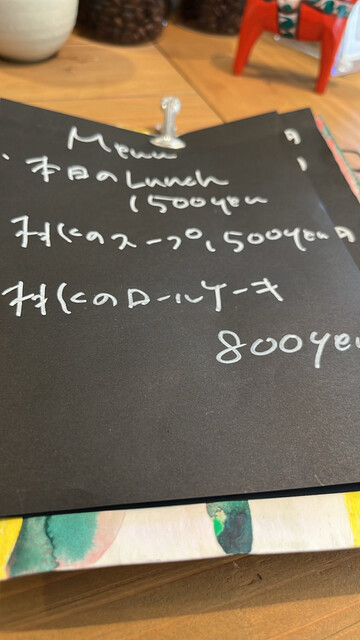 Menu
・本日のLunch
1500yen
村Cのスープ1,500yen
村Cのロールケーキ
800yen